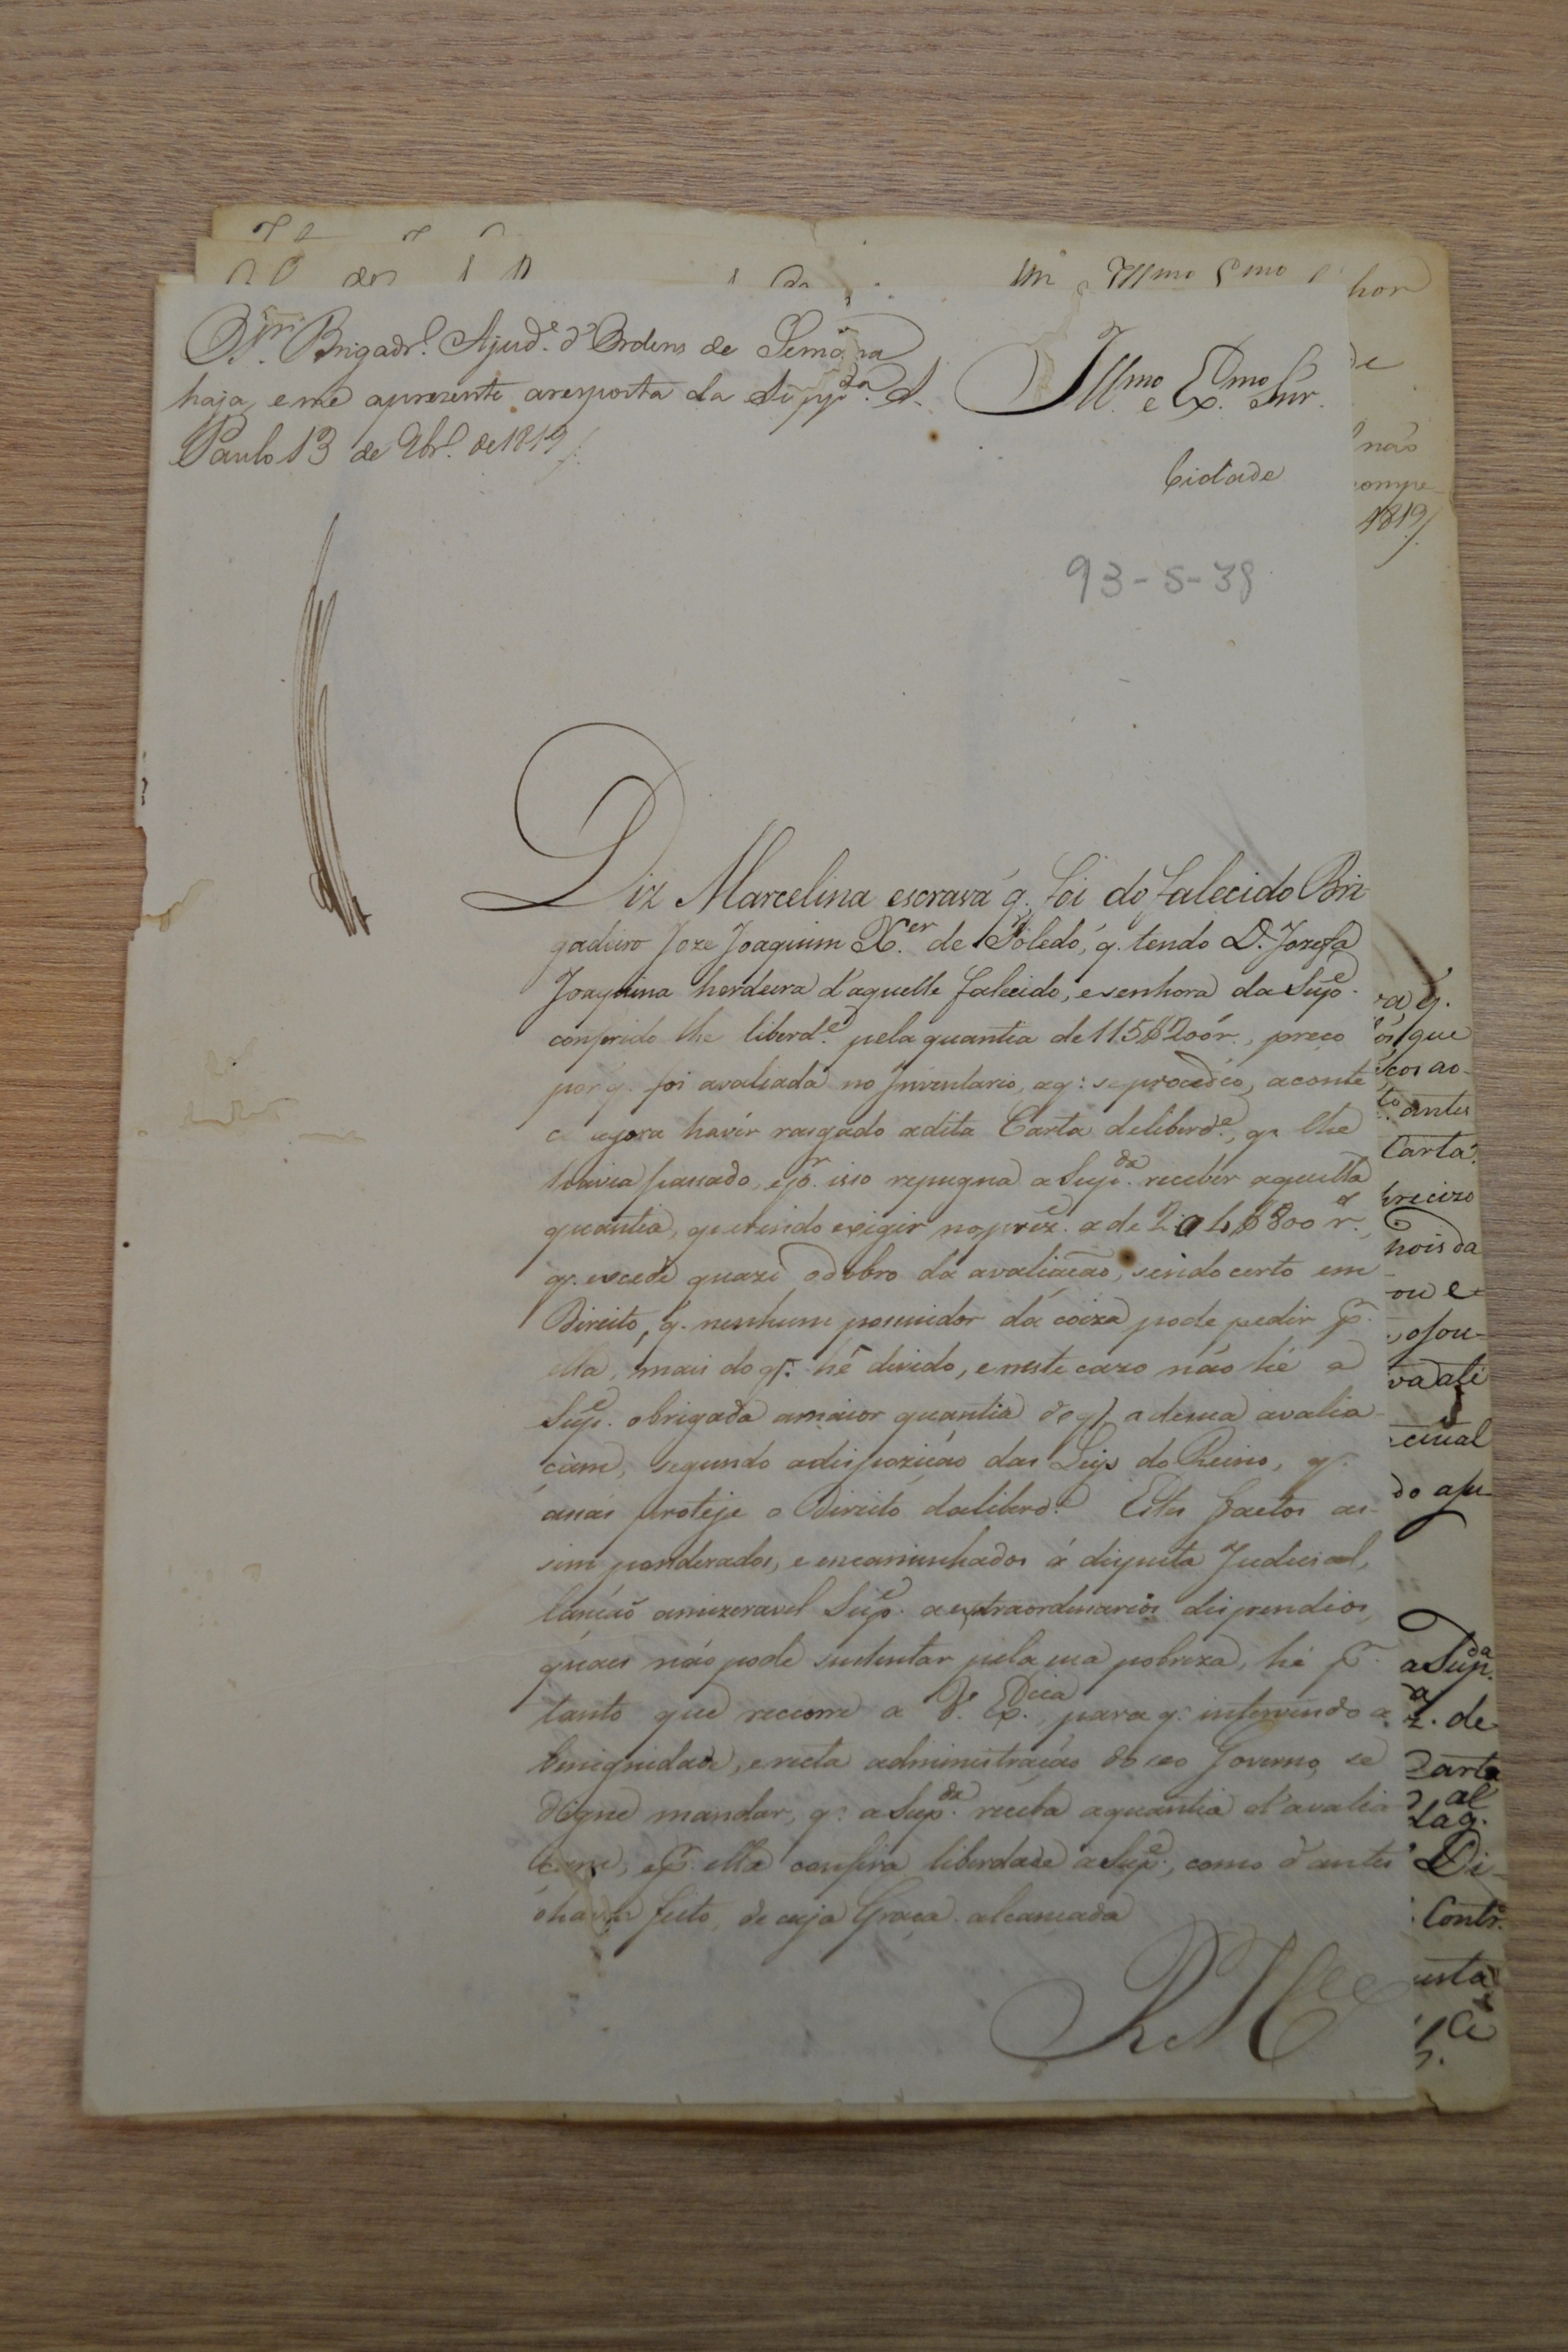 O Snr. Brigadr.º Ajud.e d'Ordens de Semana
haja, e me aprezente a resposta da Supp.da S.
Paulo 13 de Abr.l de 1819
Ill.mo e Ex.mo Snr.
Cidade
93-5-39
Diz Marcelina escrava q. foi do falecido Bri-
gadeiro Joze Joaquim X.er de Toledo, q. tendo D. Jozefa
Joaquina herdeira d'aquelle falecido, e senhora da Sup.e
conferido lhe liberd.e pela quantia de 115$200 r., preço
por q. foi avaliada no Inventario, a q: se procedeo, aconte
ce agora havêr rasgado a dita Carta de liberd.e, q. lhe
havia passado, e p.r isso repugna a Sup.da recebêr aquella
quantia, querendo exigir no prez.e a de 204$800 r.s,
q. excede quazi o dobro da avaliação, sendo certo em
Direito, q. nenhum possuidor da coiza pode pedir p.r
ella, mais do q. hé devido, e neste cazo não hé a
Sup.e obrigada a maior quantia do q. a de sua avalia
ção, segundo a dispozição das Leys do Reino, q.
assás proteje o Direito da liberd.e Estes factos as-
sim ponderados, e encaminhados á disputa Judicial,
lanção a mizeravel Sup.e a extraordinarios dispendios,
quaes não pode sustentar pela sua pobreza, hé p.r
tanto que recorre a V. Ex.cia, para q: intervindo a
benignidade, e recta administração do seo Governo, se
digne mandar, q: a Sup.da receba a quantia d'avalia
ção, e p.r ella confira liberdade a Sup.e, como d'antes
o havia feito, de cuja Graça alcançada
R M.ce
hor
de
não
compe-
1819
que
antes
Carta
precizo
pois da
ou e
do
a Sup.da
de
Carta
al
Di-
Contr.